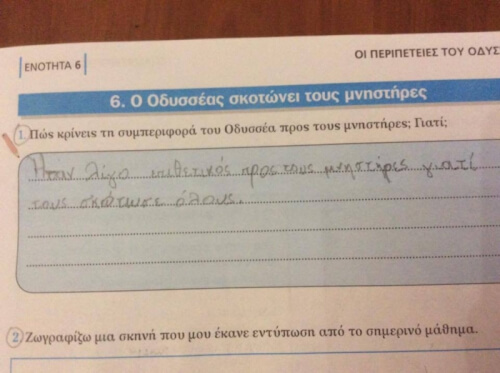 ΕΝΟΤΗΤΑ 6
ΟΙ ΠΕΡΙΠΕΤΕΙΕΣ ΤΟΥ ΟΔΥΣ
6. Ο Οδυσσέας σκοτώνει τους μνηστήρες
1. Πώς κρίνεις τη συμπεριφορά του Οδυσσέα προς τους μνηστήρες; Γιατί;
Ήταν λίγο επιθετικός προς τους μνηστήρες γιατί
τους σκότωσε όλους.
2. Ζωγραφίζω μια σκηνή που μου έκανε εντύπωση από το σημερινό μάθημα.